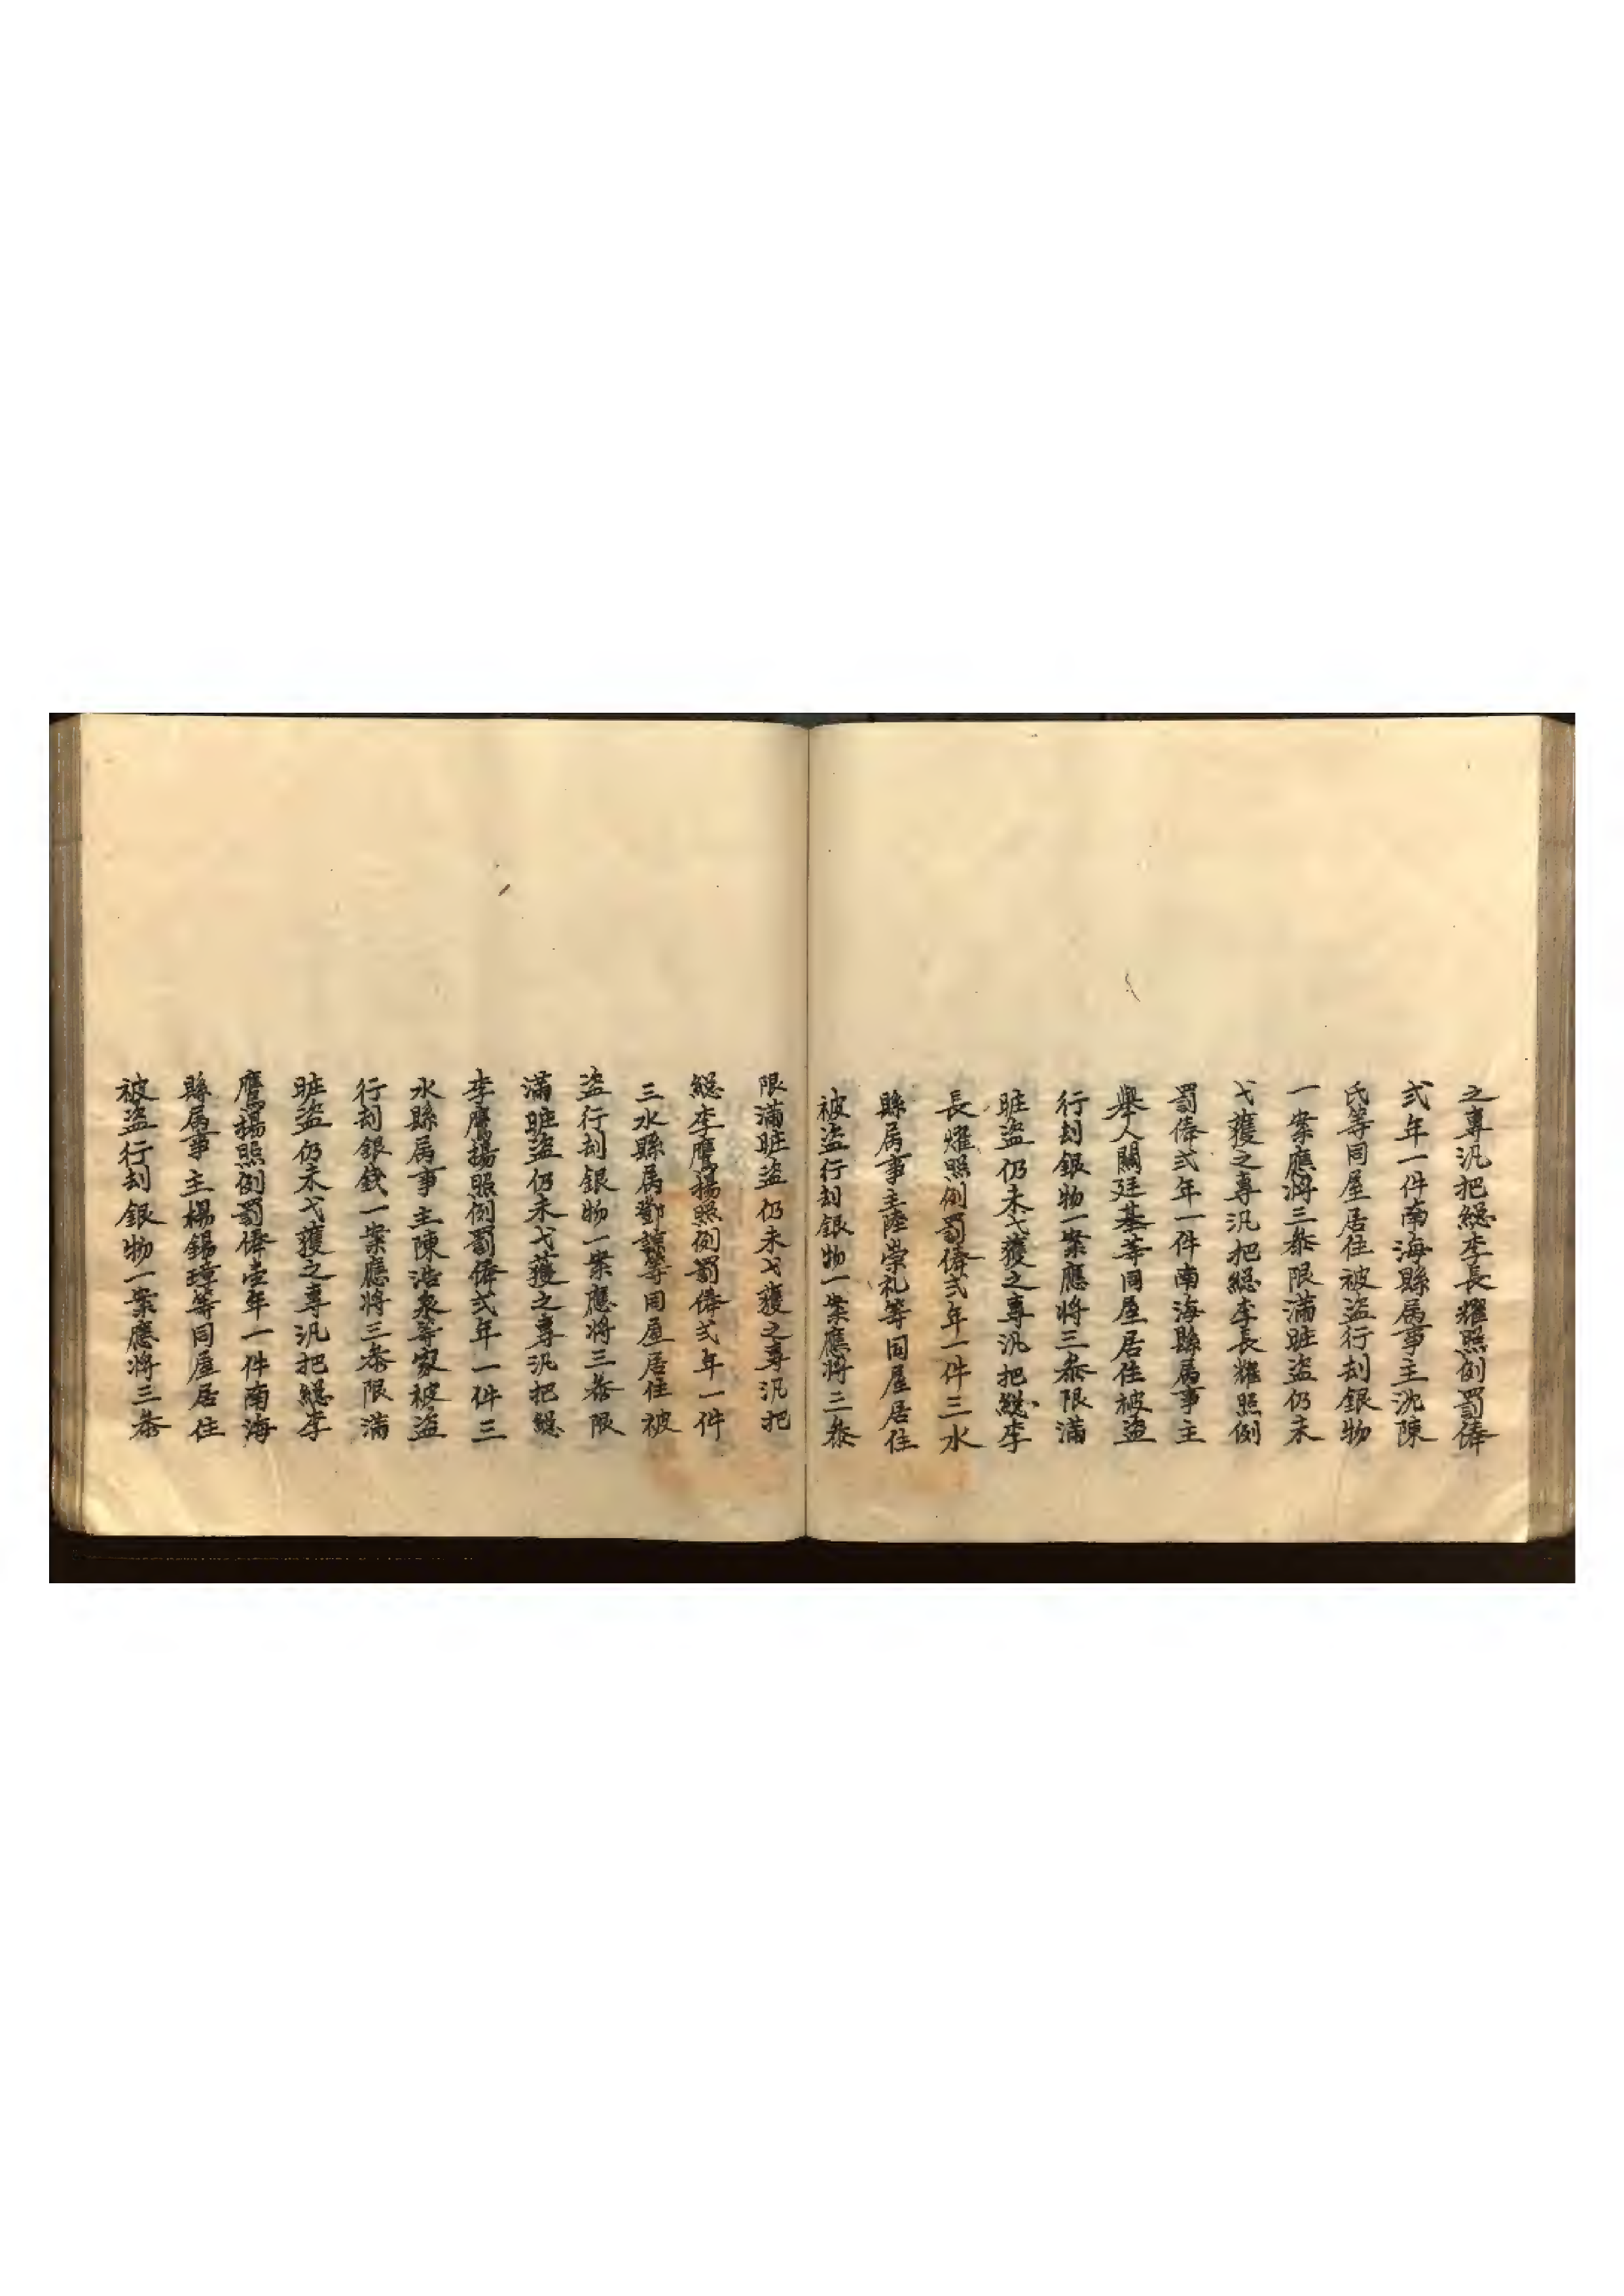 之專汛把緫李長耀照例罰俸
弍年一件南海縣屬事主沈陳
氏等同屋居住被盗行刦銀物
一案應將三叅限滿賍盗仍未
弋獲之專汛把緫李長耀照例
罰俸弍年一件南海縣屬事主
舉人關廷基等同屋居住被盗
行刦銀物一案應將三叅限滿
賍盗仍未弋獲之專汛把緫李
長耀照例罰俸弍年一件三水
縣屬事主陸崇礼等同屋居住
被盗行刦銀物一案應將三叅
限滿賍盗仍未弋獲之專汛把
緫李鷹揚照例罰俸弍年一件
三水縣屬鄧等同屋居住被
盗行刦銀物一案應将三叅限
滿賍盗仍未弋獲之專汛把緫
李鷹揚照例罰俸弍年一件三
水縣屬事主陳浩泉等家被盗
行刦銀錢一案應將三叅限滿
賍盗仍未弋獲之專汛把緫李
鷹揚照例罰俸壹年一件南海
縣屬事主楊錫璋等同屋居住
被盗行刦銀物一案應將三叅